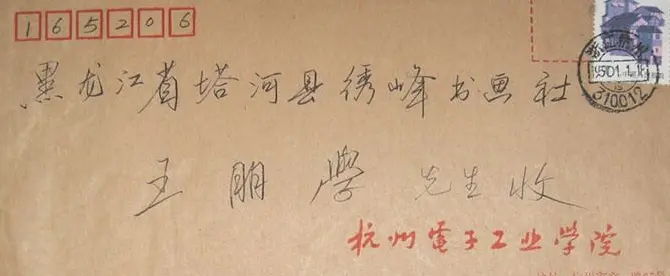 165206
黑龙江省塔河县绣峰书画社
王朋學 先生收
杭州電子工业学院
310012